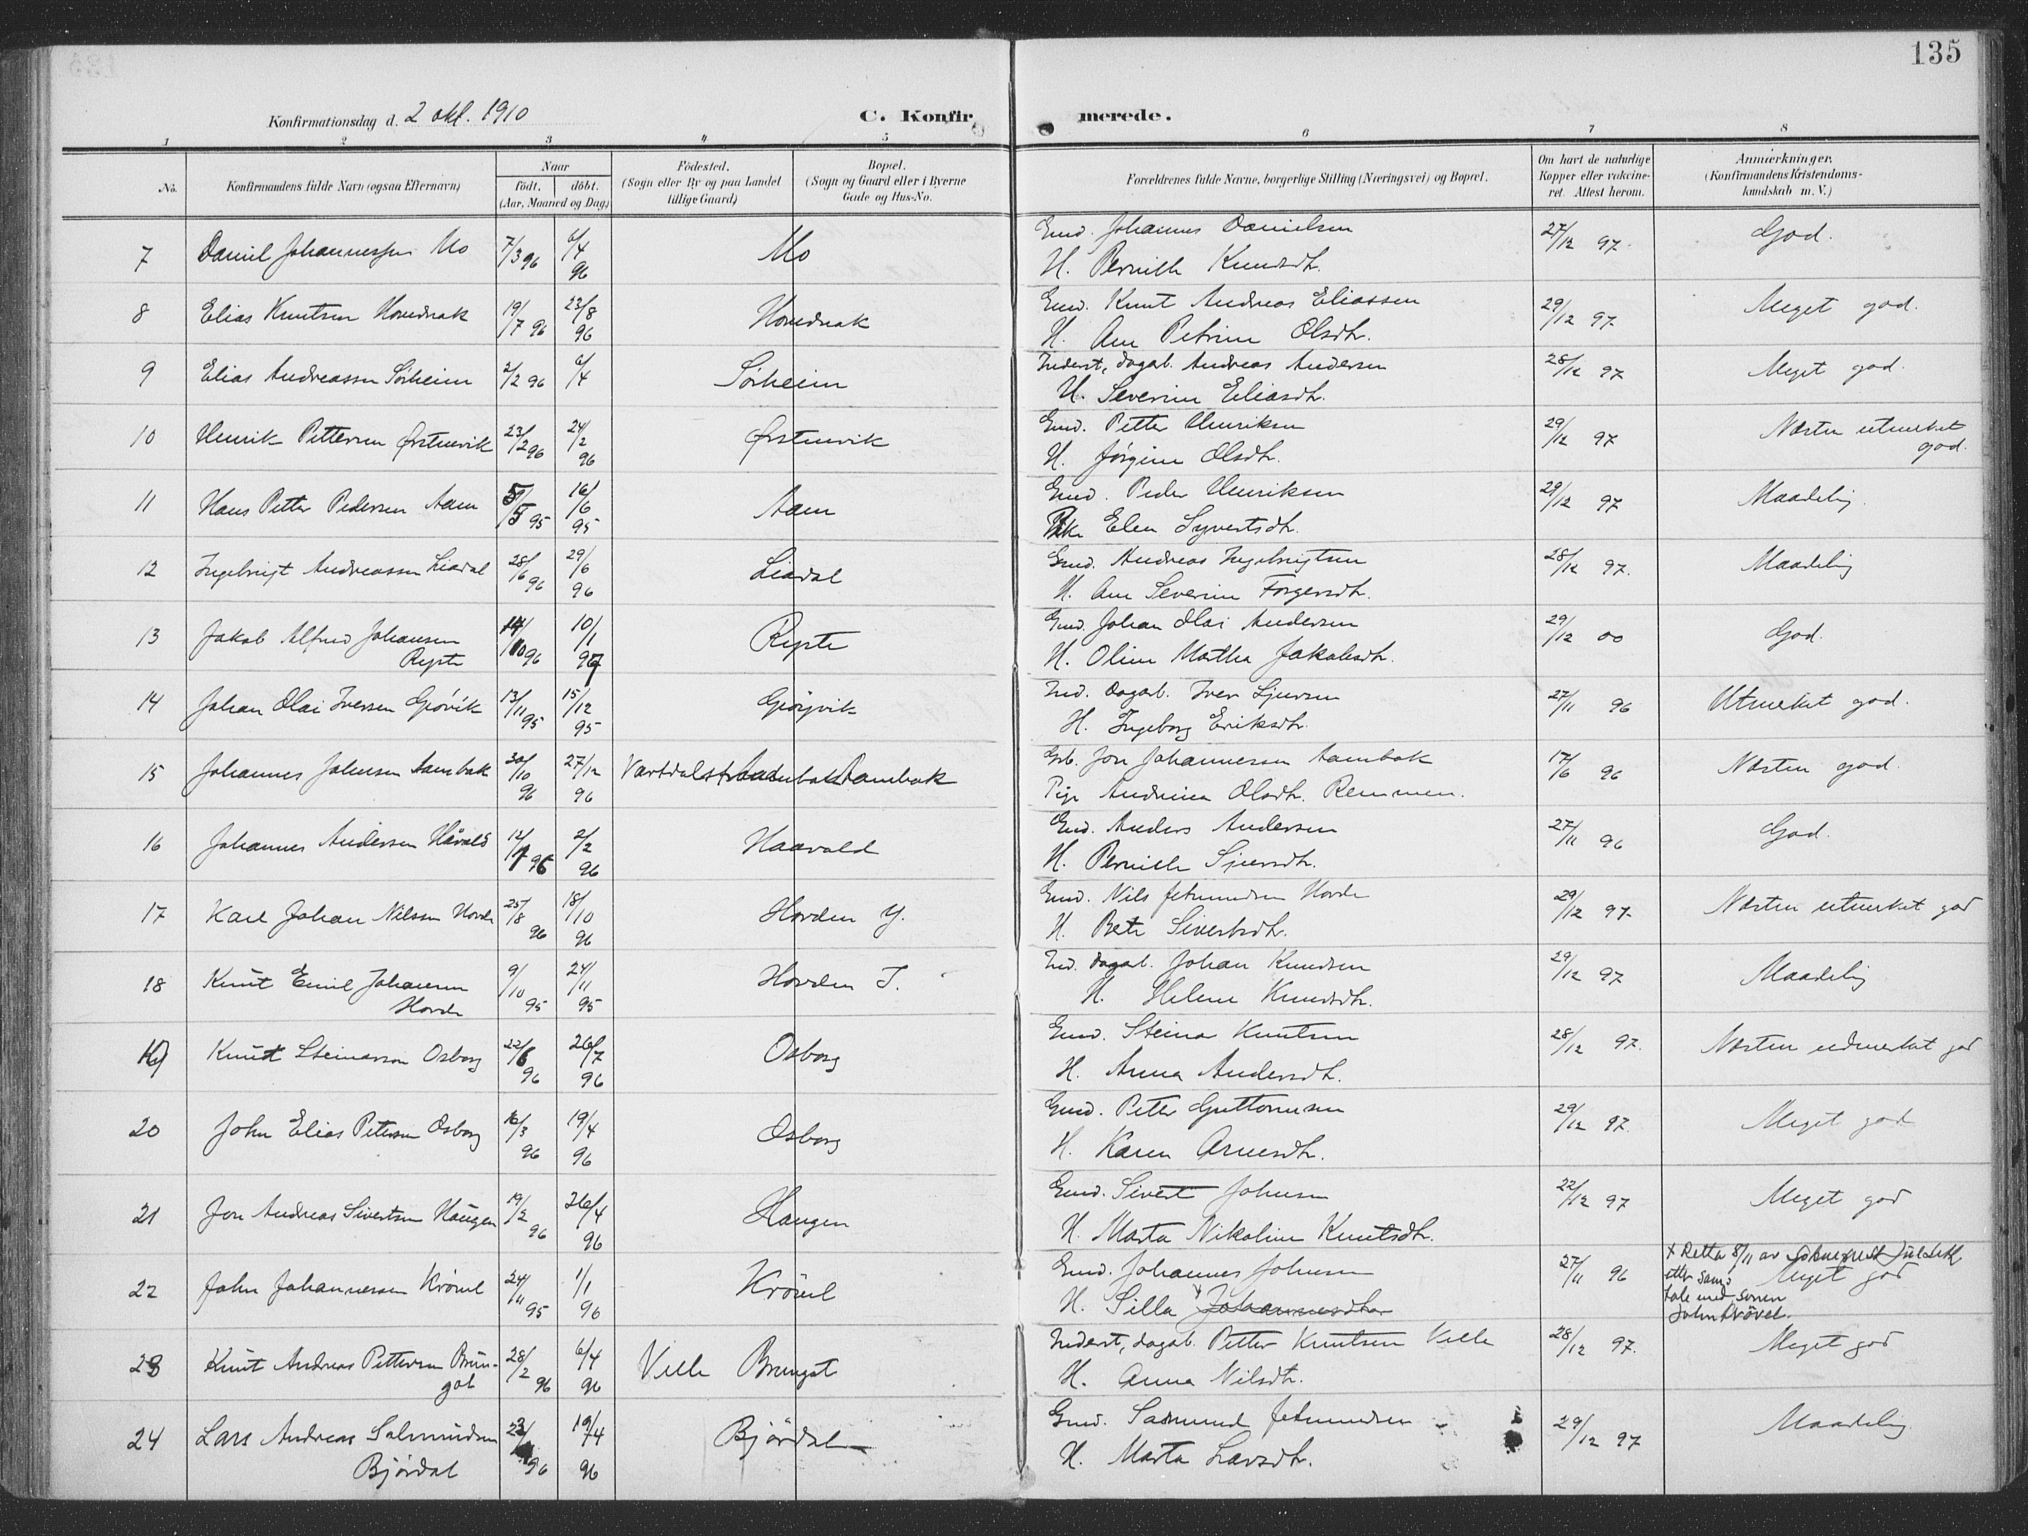 135
Konfirmationsdag d. 2 okt. 1910
C. Konfirmerede.
1 2 3 4 5 6 7 8
No. Konfirmandens fulde Navn (ogsaa Efternavn) Naar födt. döbt. (Aar, Maaned og Dag) Födested. (Sogn eller By og paa Landet tillige Gaard) Bopæl. (Sogn og Gaard eller i Byerne Gade og Hus-No. Forældrenes fulde Navne, borgerlige Stilling (Næringsvei) og Bopæl. Om havt de naturlige Kopper eller vakcineret. Attest herom. Anmærkninger. (Konfirmandens Kristendomskundskab m. V.)
7 Daniel Johannessen Mo 7/3 96 6/4 96 Mo Gmd. Johannes Danielsen 27/12 97. God.
H. Pernille Knudsdtr.
8 Elias Knutsen Hovdenak 19/7 96 23/8 96 Hovdenak Gmd. Knut Andreas Eliassen 29/12 97. Meget god.
H. Ane Petrine Olsdtr.
9 Elias Andreassen Sörheim 2/2 96 6/4 Sörheim Inderst, dagarb. Andreas Andersen 28/12 97 Meget god.
H. Severine Eliasdtr.
10 Henrik Pettersen Ørstenvik 23/2 96 24/2 96 Ørstenvik Gmd. Petter Henriksen 29/12 97 Næsten utmerket god.
H. Jørgine Olsdtr.
11 Hans Petter Pedersen Aam 5/5 95 16/6 95 Aam Gmd. Peder Henriksen 29/12 97 Maadelig.
Elen Syvertsdtr.
12 Ingebrigt Andreassen Liadal 28/6 96 29/6 96 Liadal Gmd. Andreas Ingebrigtsen 28/12 97. Maadelig
H. Ane Severine Torgersdtr.
13 Jakob Alfred Johansen Rypte 14/10 96 10/1 97 Rypte Gmd. Johan Olai Andersen 29/12 00 God.
H. Oline Martha Jakobsdtr.
14 Johan Olai Iversen Gjøvik 13/11 95 15/12 95 Gjørjvik Ind. Dagarb. Iver Sjursen 27/11 96 Utmerket god.
H. Ingeborg Eriksdtr.
15 Johannes Johnsen Aambak 30/10 96 27/12 96 Vartdalstrand Aambak Grb. Jon Johannessen Aambak 17/6 96 Næsten god.
Pige Andrina Olsdtr. Remmen.
16 Johannes Andersen Håvold 12/1 96 2/2 96 Haavold Gmd. Anders Andersen 27/11 96 God.
H. Pernille Sjursdtr.
17 Karl Johan Nilsen Hovde 25/8 96 18/10 96 Hovden Y. Gmd. Nils Jetmundsen Hovde 29/12 97. Næsten utmerket god
H. Berte Sivertsdtr.
18 Knut Emil Johansen Hovde 9/10 95 24/11 95 Hovden I. Ind. dagarb. Johan Knudsen 29/12 97 Maadelig
H. Helene Knudsdtr.
19 Knut Steinarson Osborg 22/6 96 26/7 96 Osborg Gmd. Steinar Knutsen 28/12 97. Næsten udmerket god
H. Anna Andersdtr.
20 John Elias Petersen Osborg 16/3 96 19/4 96 Osborg Gmd. Peter Guttormsen 29/12 97. Meget god
H. Karen Arnesdtr.
21 Jon Andreas Sivertsen Haugen 19/2 96 26/4 96 Haugen Gmd. Sivert Johnsen 22/12 97 Meget god
H. Marta Nikoline Knutsdtr.
22 John Johannessen Krövel 24/11 95 1/1 96 Krövel Gmd. Johannes Johnsen 27/11 96 Meget god
x Retta 8/11 av sokneprest
etter sam-
tale med sonen
John Krövel.
H. Silla x Johannesdtr
23 Knut Andreas Pettersen Brungot 28/2 96 6/4 96 Velle Brungot Inderst, dagarb. Petter Knutsen Velle 28/12 97. Meget god
H. Anna Nilsdtr.
24 Lars Andreas Salmundsen Björdal 23/ 96 19/4 96 Björdal Gmd. Salmund Jetmundsen 29/12 97 Maadelig
H. Marta Larsdtr.